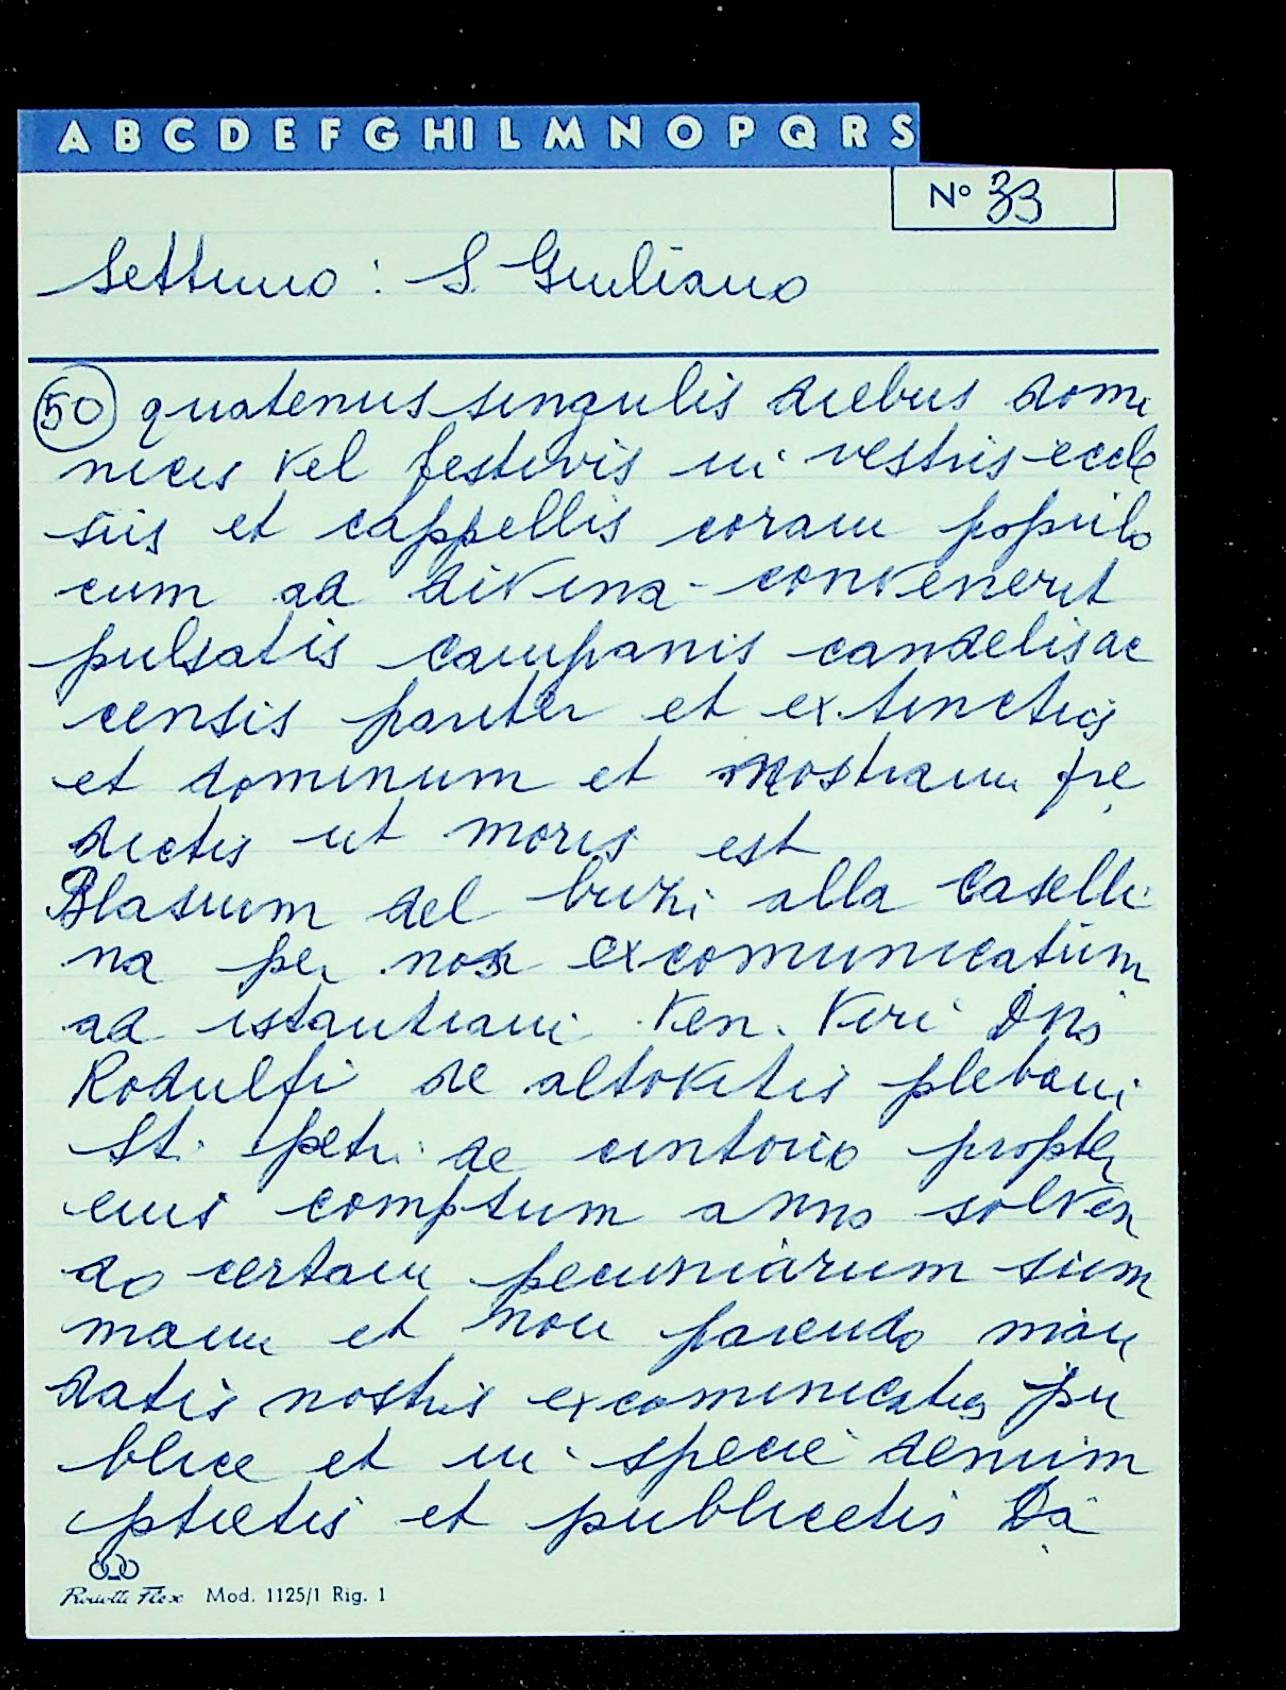 A B C D E F G HI L M N O P Q R S
N° 33
Settimo : S. Giuliano
50 quatenus singulis diebus domi
nicis vel festivis in vestris eccle
siis et cappellis coram populo
cum ad divina convenerit
pulsatis campanis candelis ac
censis pariter et extinctis
et dominum et nostram pre
dictis ut moris est
Blasium del buzi alla Caselli
na per nos excomunicatum
ad istantiam Ven. Viri Dni
Rodulfi de altovitis plebani
St. petri de cintorio propter
eius comptum anno solven
do certam pecuniarum sum
mam et non parendo man
datis nostris excomunicatis pu
blice et in specie denum
ptietis et publicetis Da
Mod. 1125/1 Rig. 1